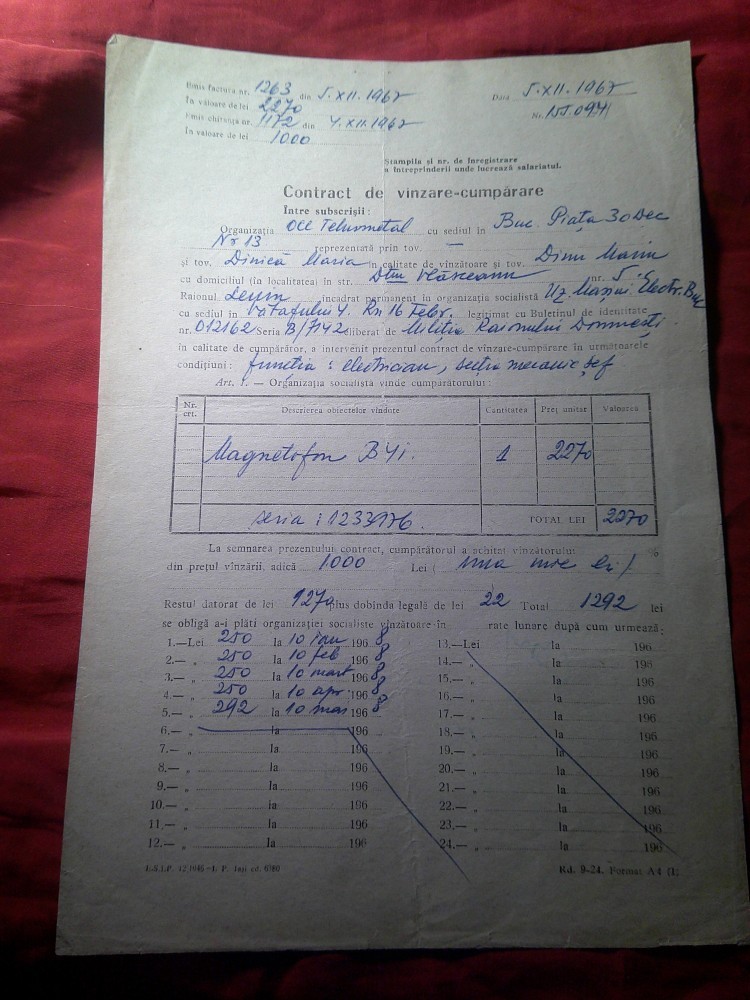 Emis factura nr. 1263 din 5.XII.1967 Data 5.XII.1967
în valoare de lei 2270
Emis chitanța nr. 1172 din 4.XII.1967 Nr. 155.094
în valoare de lei 1000
Ștampila și nr. de înregistrare
a întreprinderii unde lucrează salariatul.
Contract de vînzare-cumpărare
Între subscrișii:
Organizația OCL cu sediul în Buc. Piața 30 Dec
Nr 13 reprezentată prin tov. —
și tov. Dinică Maria în calitate de vînzătoare și tov. Dinu Marin
cu domiciliul (în localitatea) în str. Vlăsceanu nr. 5
Raionul Lenin încadrat permanent în organizația socialistă Uz. Mașini Electr. Buc
cu sediul în Vatafului 4. Rn 16 Febr. legitimat cu Buletinul de identitate
nr. 012162 Seria B/7142 eliberat de Miliția Raionului Domnești
în calitate de cumpărător, a intervenit prezentul contract de vînzare-cumpărare în următoarele
condițiuni: funcția: electrician, secția mecanic șef
Art. 1. — Organizația socialistă vinde cumpărătorului:
Nr. crt. Descrierea obiectelor vîndute Cantitatea Preț unitar Valoarea
Magnetofon B4i. 1 2270
seria: 1233976. TOTAL LEI 2270
La semnarea prezentului contract, cumpărătorul a achitat vînzătorului %
din prețul vînzării, adică 1000 Lei ( una mie lei )
Restul datorat de lei 1270 plus dobînda legală de lei 22 Total 1292 lei
se obligă a-i plăti organizației socialiste vînzătoare în rate lunare după cum urmează:
1.—Lei 250 la 10 ian 196 8 13.—Lei la 196
2.— „ 250 la 10 feb 196 8 14.— „ la 196
3.— „ 250 la 10 mart 196 8 15.— „ la 196
4.— „ 250 la 10 apr. 196 8 16.— „ la 196
5.— „ 292 la 10 mai 196 8 17.— „ la 196
6.— „ la 196 18.— „ la 196
7.— „ la 196 19.— „ la 196
8.— „ la 196 20.— „ la 196
9.— „ la 196 21.— „ la 196
10.— „ la 196 22.— „ la 196
11.— „ la 196 23.— „ la 196
12.— „ la 196 24.— „ la 196
I. P. Iași cd. Rd. 9-24. Format A4